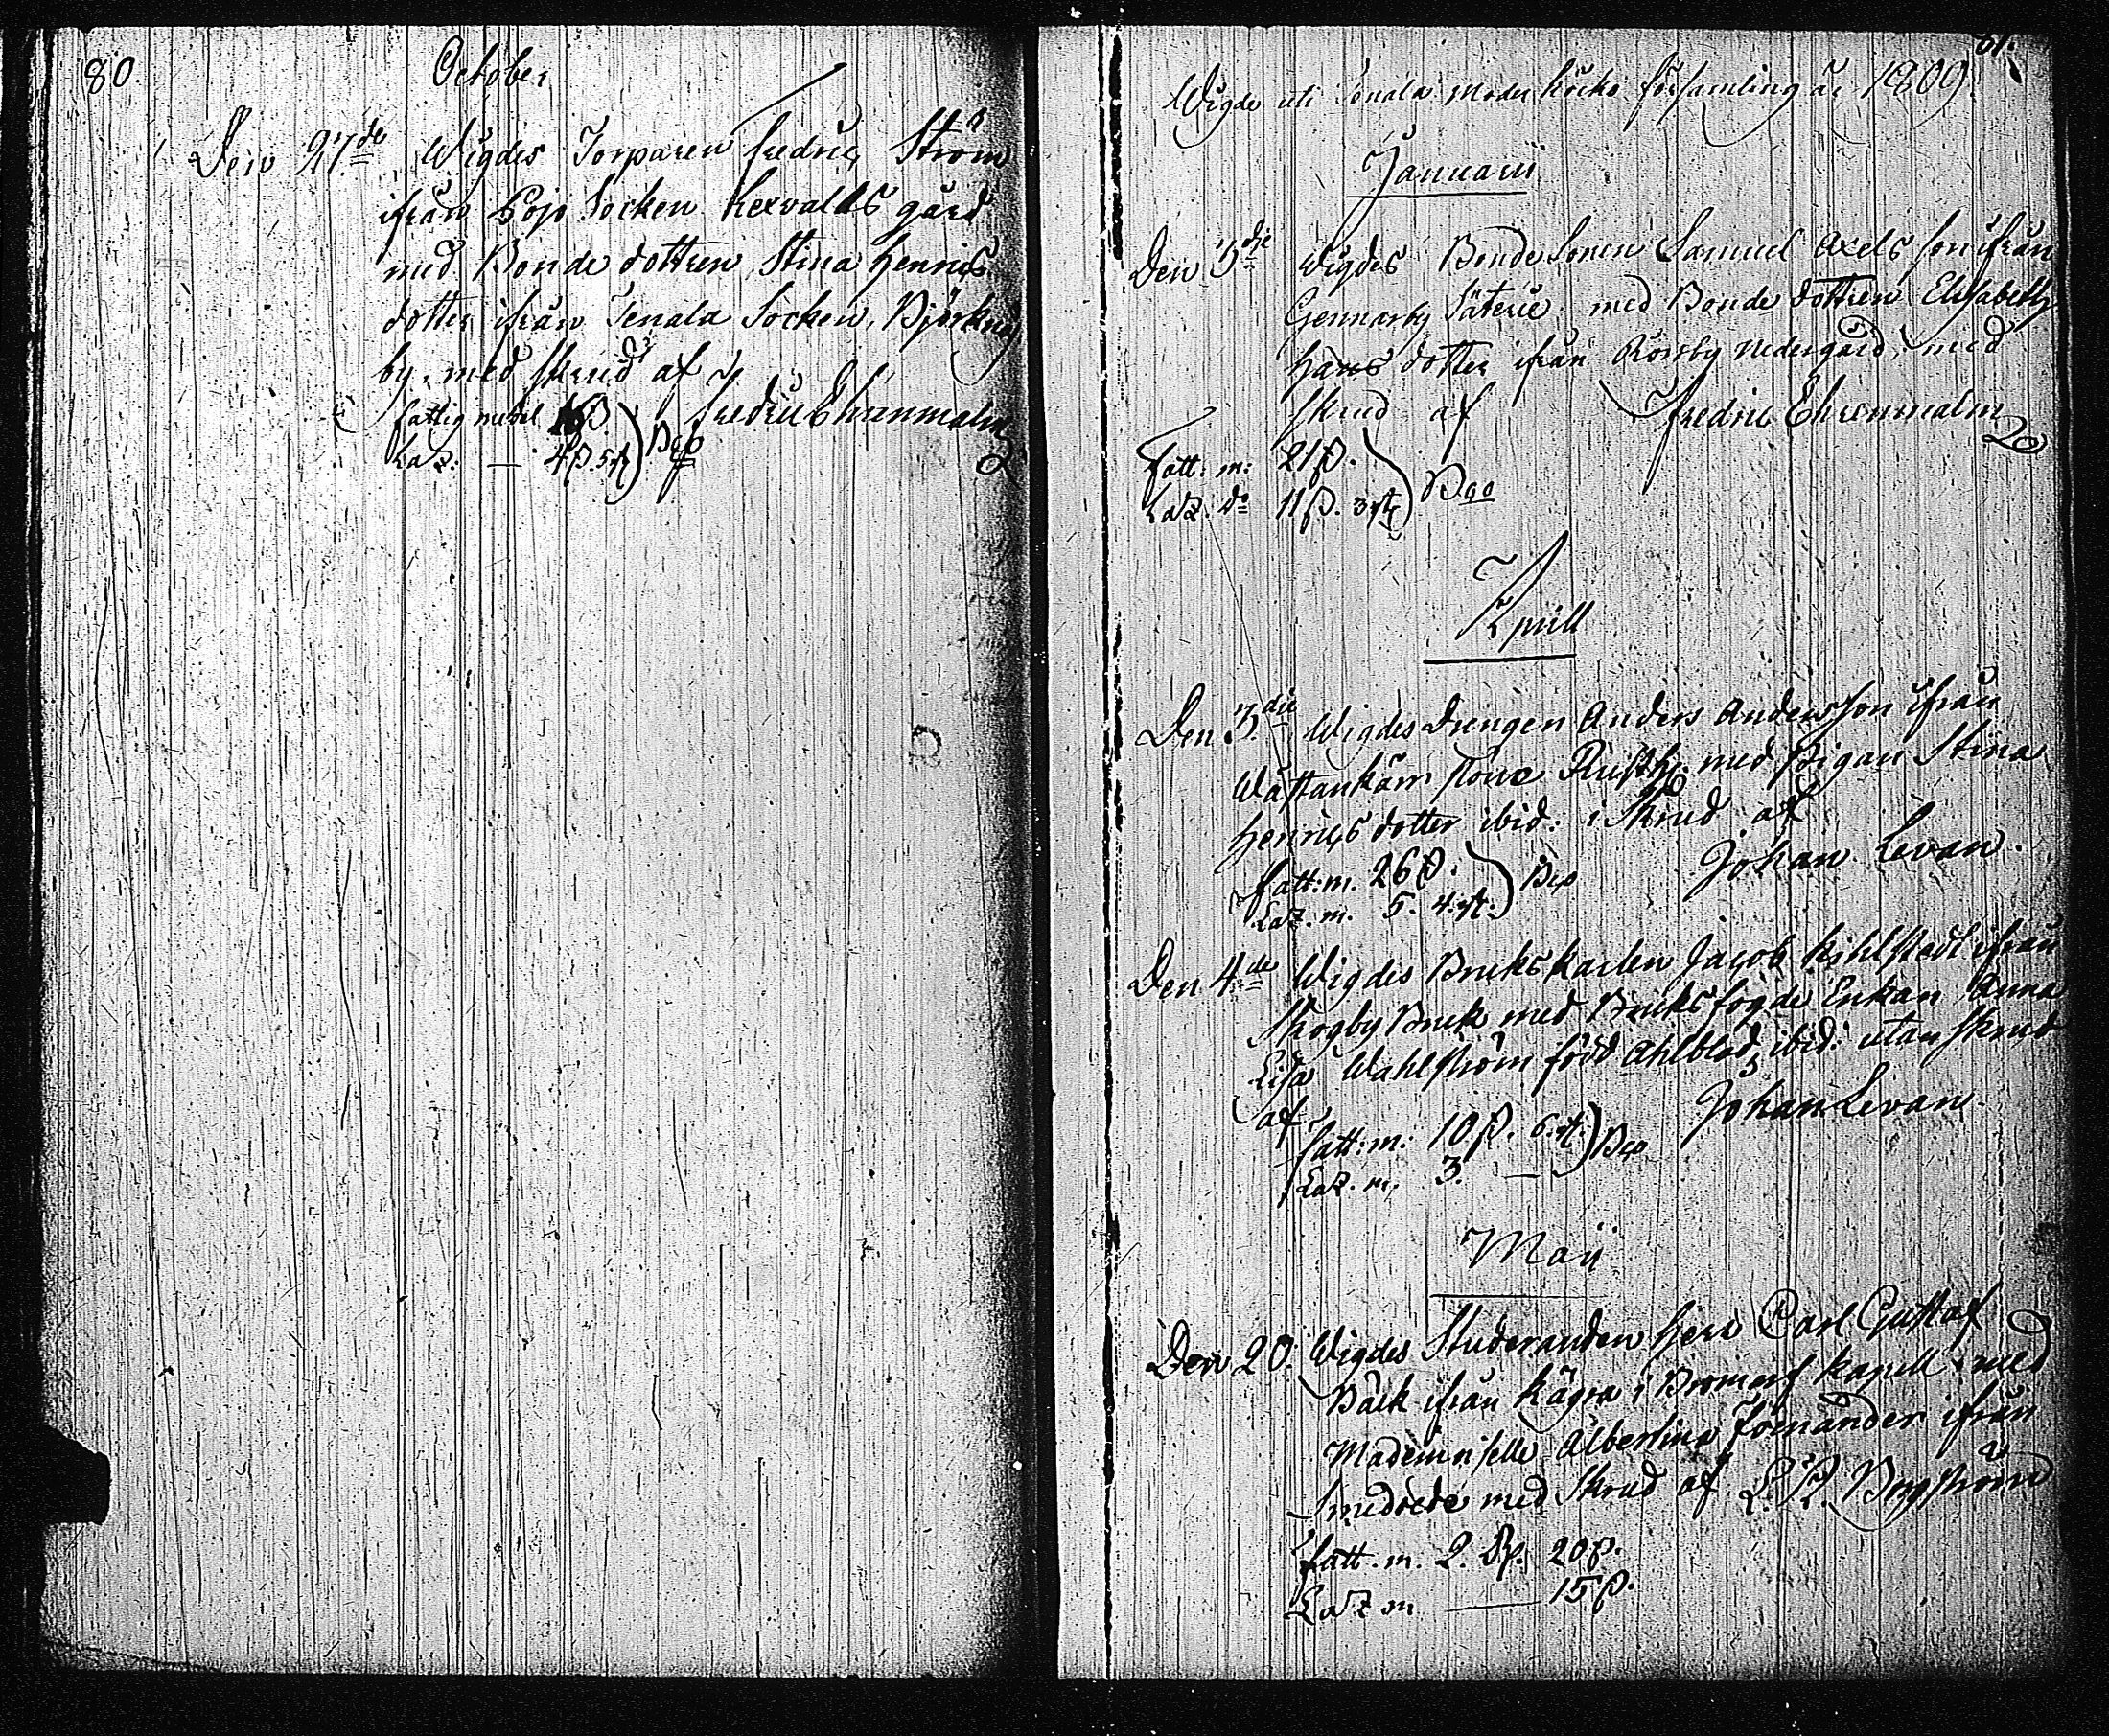 80.
October
Den 27.de Wigdes Torparen Fredric Ström
ifrån Pojo Socken Rexvalls gård
med Bonde dottren Stina Henrics
dotter ifrån Tenala Socken, Björknäs
by, med Skrud af
Fredric Ehrenmalm
fattig medel ß.
Laz: — 4ß 5
81.
Wigde uti Tenala Moder Kÿrko församling år 1809.
Januarii
Den 3dje Wigdes Bonde Sonen Samuel Axels son ifrån
Gennarby Säterie med Bonde dottren Elisabeth
Hans dotter ifrån Rössby Nedergård, med
Skrud af Fredric Ehrenmalm
fatt: m: 21ß.
Laz. do 11ß. 3
Aprill
Den 3.die Wigdes Drengen Anders Andersson ifrån
Wättankärr Rusth. med Pigan Stina
Henrics dotter ibid: i Skrud af
Johan Levan.
fatt: m. 26ß.
Laz. m. 5. 4.
Den 4.de Wigdes Brukskarlen Jacob Kihlstedt ifrån
Skogby Bruk med Bruksfogde Enkan Anna
Lisa Wahlström född Ahlblad, ibid: utan Skrud
af Johan Levan.
fatt: m: 10ß. 6.
Laz. m. 3. —
Maij
Den 20. Wigdes Studeranden Herr Carl Gustaf
Bäck ifrån Kägra i Bromarf Kapell med
Mademoiselle Albertina Fornander ifrån
Smedsede med Skrud af L. P. Bergström
fatt. m. 2. Rd. 20ß.
Laz m — 15ß.